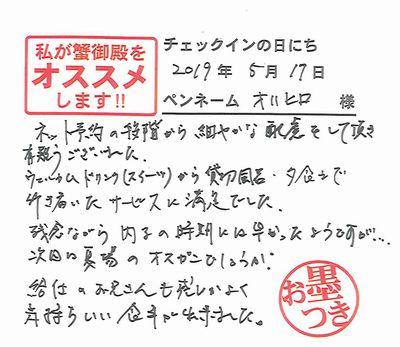 私が蟹御殿を
オススメ
します!!
チェックインの日にち
2019年 5月 17日
ペンネーム オリヒロ 様
ネット予約の段階から細やかな配慮をして頂き
有難うございました。
ウェルカムドリンク(スイーツ)から貸切風呂・夕食まで
行き届いたサービスに満足でした。
残念ながら内子の時期には早かったようですが…
次回は夏場のオスガニでしょうか?
給仕のお兄さんも感じがよく
気持ちいい食事が出来ました。
お墨つき